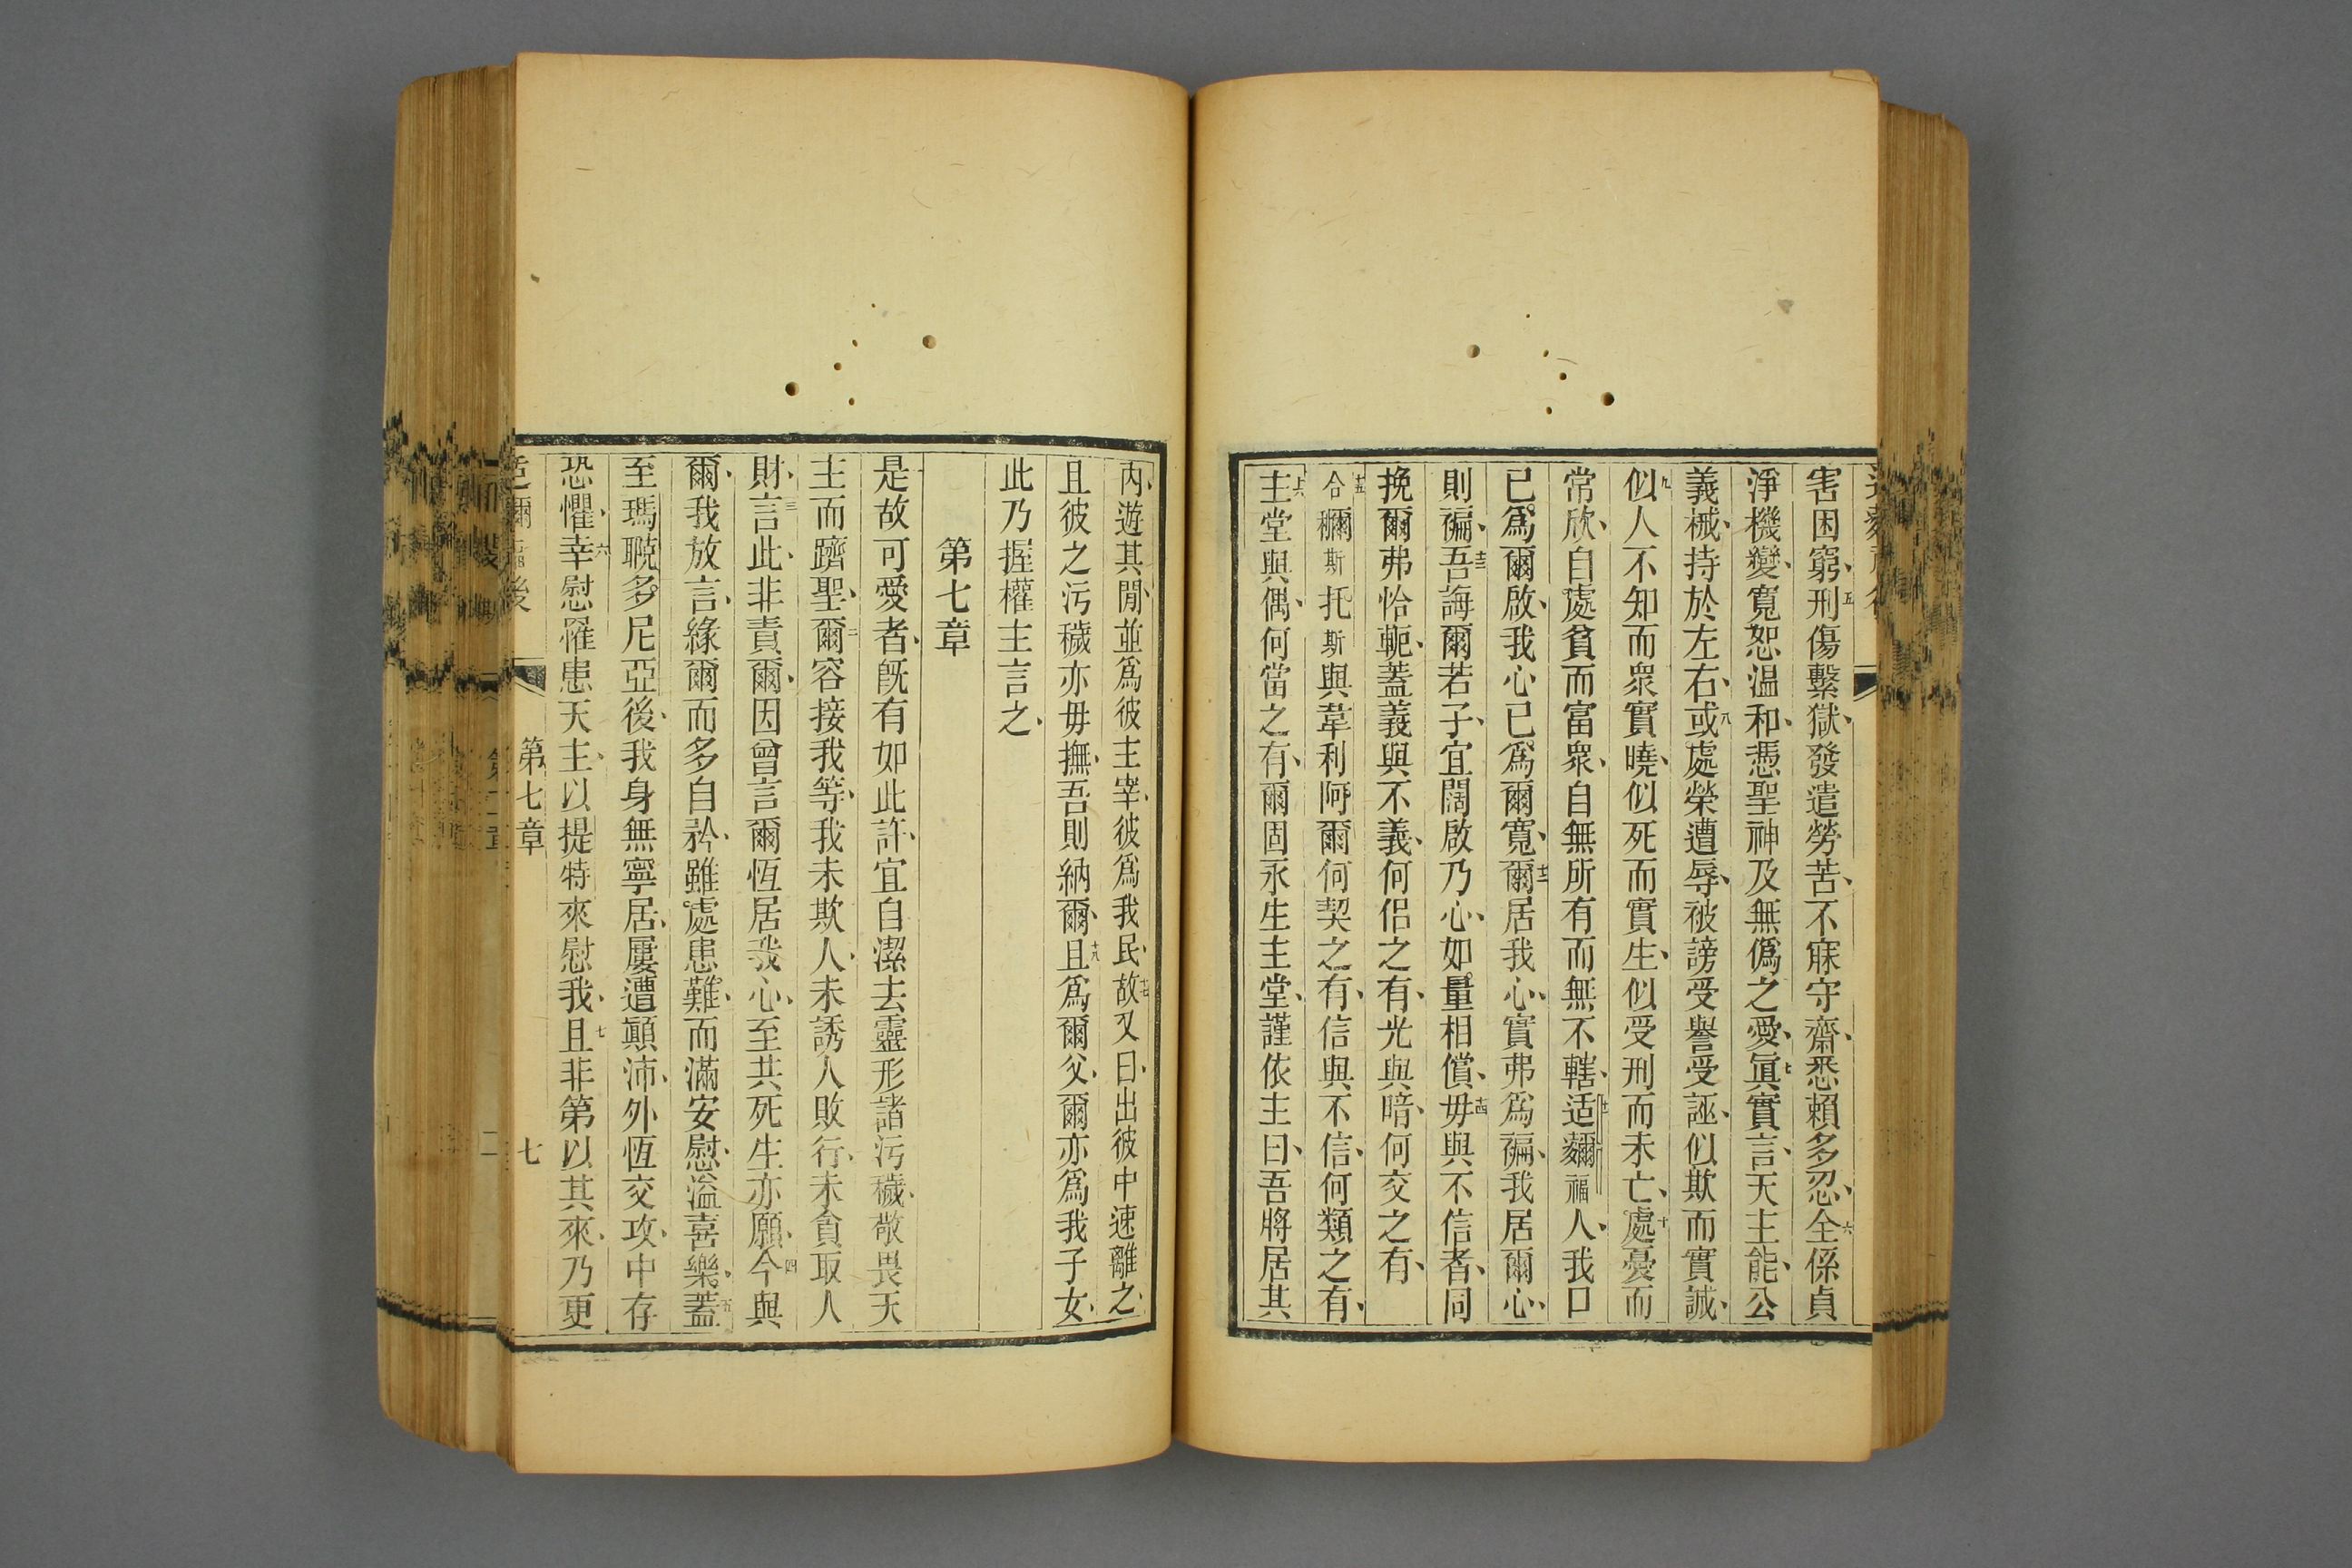 害困窮、五刑傷繫獄、發遣勞苦、不寐守齋、悉賴多忍、六全係貞
淨機變、寬恕温和、憑聖神及無僞之愛、七眞實言、天主能、公
義械、持於左右、八或處榮遭辱、被謗受譽受誣、似欺而實誠、
九似人不知而衆實曉、似死而實生、似受刑而未亡、十處憂而
常欣、自處貧而富衆、自無所有而無不轄、十一适𪋿福人、我口
已爲爾啟、我心已爲爾寬、十二爾居我心、實弗爲褊、我居爾心、
則褊、十三吾誨爾若子、宜闊啟乃心、如量相償、十四毋與不信者、同
挽爾弗恰軛、蓋義與不義、何侶之有、光與暗、何交之有、
十五合𪐀斯托斯與葦利阿爾何契之有、信與不信、何類之有、
十六主堂與偶、何當之有、爾固永生主堂、謹依主曰、吾將居其
內、遊其閒、並爲彼主宰、彼爲我民、十七故又曰、出彼中速離之、
且彼之污穢亦毋撫、吾則納爾、十八且爲爾父、爾亦爲我子女、
此乃握權主言之、
第七章
是故可愛者、旣有如此許、宜自潔去靈形諸污穢、敬畏天
主而躋聖、二爾容接我等、我未欺人、未誘人敗行、未貪取人
財、三言此、非責爾、因曾言爾恆居我心、至共死生亦願、四今與
爾、我放言、緣爾而多自矜、雖處患難、而滿安慰、溢喜樂、五蓋
至瑪𦗞多尼亞後、我身無寧居、屢遭顛沛、外恆交攻、中存
恐懼、六幸慰罹患天主、以提特來慰我、七且非第以其來、乃更
第七章
七